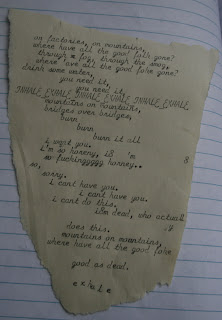 on factories, on mountains,
where have all the good folk gone?
through a fog, through the smog,
where have all the good folke gone?
drink some water,
you need it,
you need it,
INHALE EXHALE INHALE EXHALE INHALE EXHALE
mountains on mountains,
bridges over bridges,
burn
burn
burn it all
I want you.
I'm so hungry, is 'm
so fuckinggggg hungry..
so,
sorry.
i cant have you.
i cant have you.
i cant do this.
im dead, who actuall
y
does this.
mountains on mountains,
where have all the good folke
good as dead.
exhale